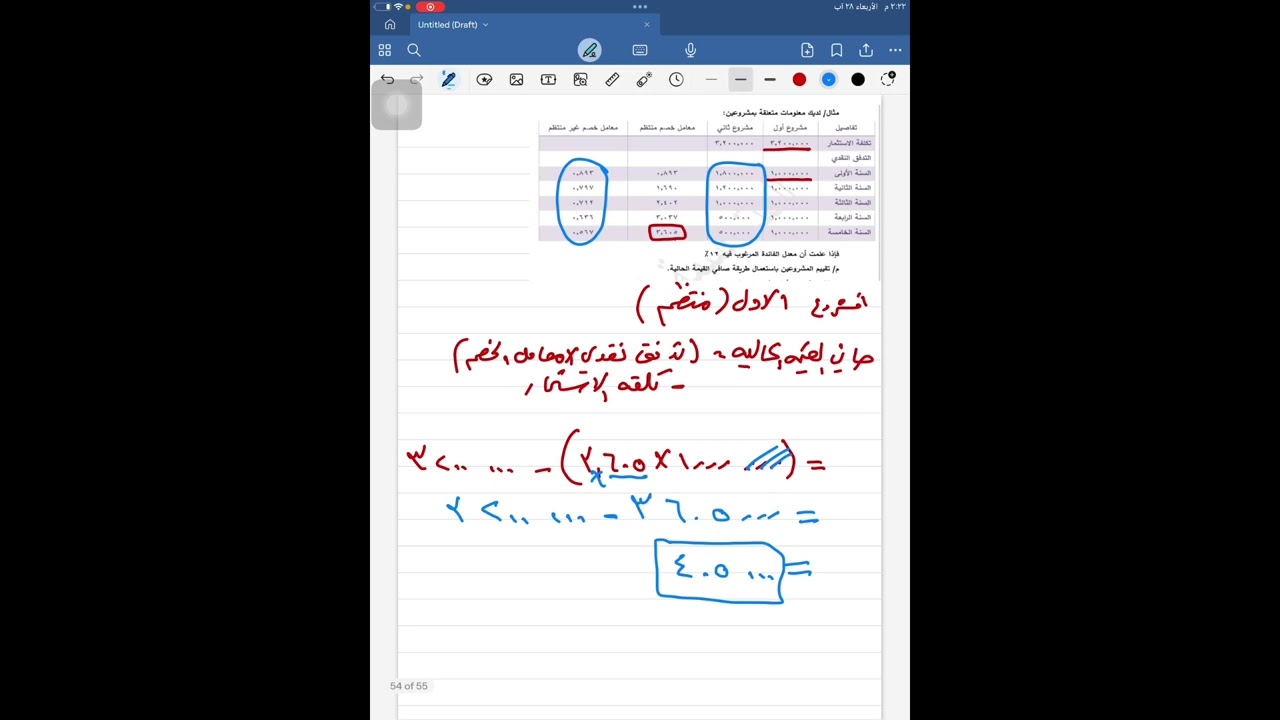 ٢:٢٢ م الأربعاء ٢٨ آب
Untitled (Draft)
مثال/ لديك معلومات متعلقة بمشروعين:
تفاصيل مشروع أول مشروع ثاني معامل خصم منتظم معامل خصم غير منتظم
تكلفة الاستثمار ٣,٢٠٠,٠٠٠ ٣,٢٠٠,٠٠٠
التدفق النقدي
السنة الأولى ١,٠٠٠,٠٠٠ ١,٨٠٠,٠٠٠ ٠,٨٩٣ ٠,٨٩٣
السنة الثانية ١,٠٠٠,٠٠٠ ١,٢٠٠,٠٠٠ ١,٦٩٠ ٠,٧٩٧
السنة الثالثة ١,٠٠٠,٠٠٠ ١,٠٠٠,٠٠٠ ٢,٤٠٢ ٠,٧١٢
السنة الرابعة ١,٠٠٠,٠٠٠ ٥٠٠,٠٠٠ ٣,٠٣٧ ٠,٦٣٦
السنة الخامسة ١,٠٠٠,٠٠٠ ٥٠٠,٠٠٠ ٣,٦٠٥ ٠,٥٦٧
فإذا علمت أن معدل الفائدة المرغوب فيه ١٢٪
م/ تقييم المشروعين باستعمال طريقة صافي القيمة الحالية.
المشروع الاول (منتظم)
صافي القيمة الحالية = (تدفق نقدي × معامل الخصم)
- تكلفة الاستثمار
= (٣,٦٠٥ × ١٠٠٠ ٠٠٠) - ٣٢٠٠ ٠٠٠
= ٣٦٠٥٠٠٠ - ٣٢٠٠ ٠٠٠
= ٤٠٥ ٠٠٠
54 of 55